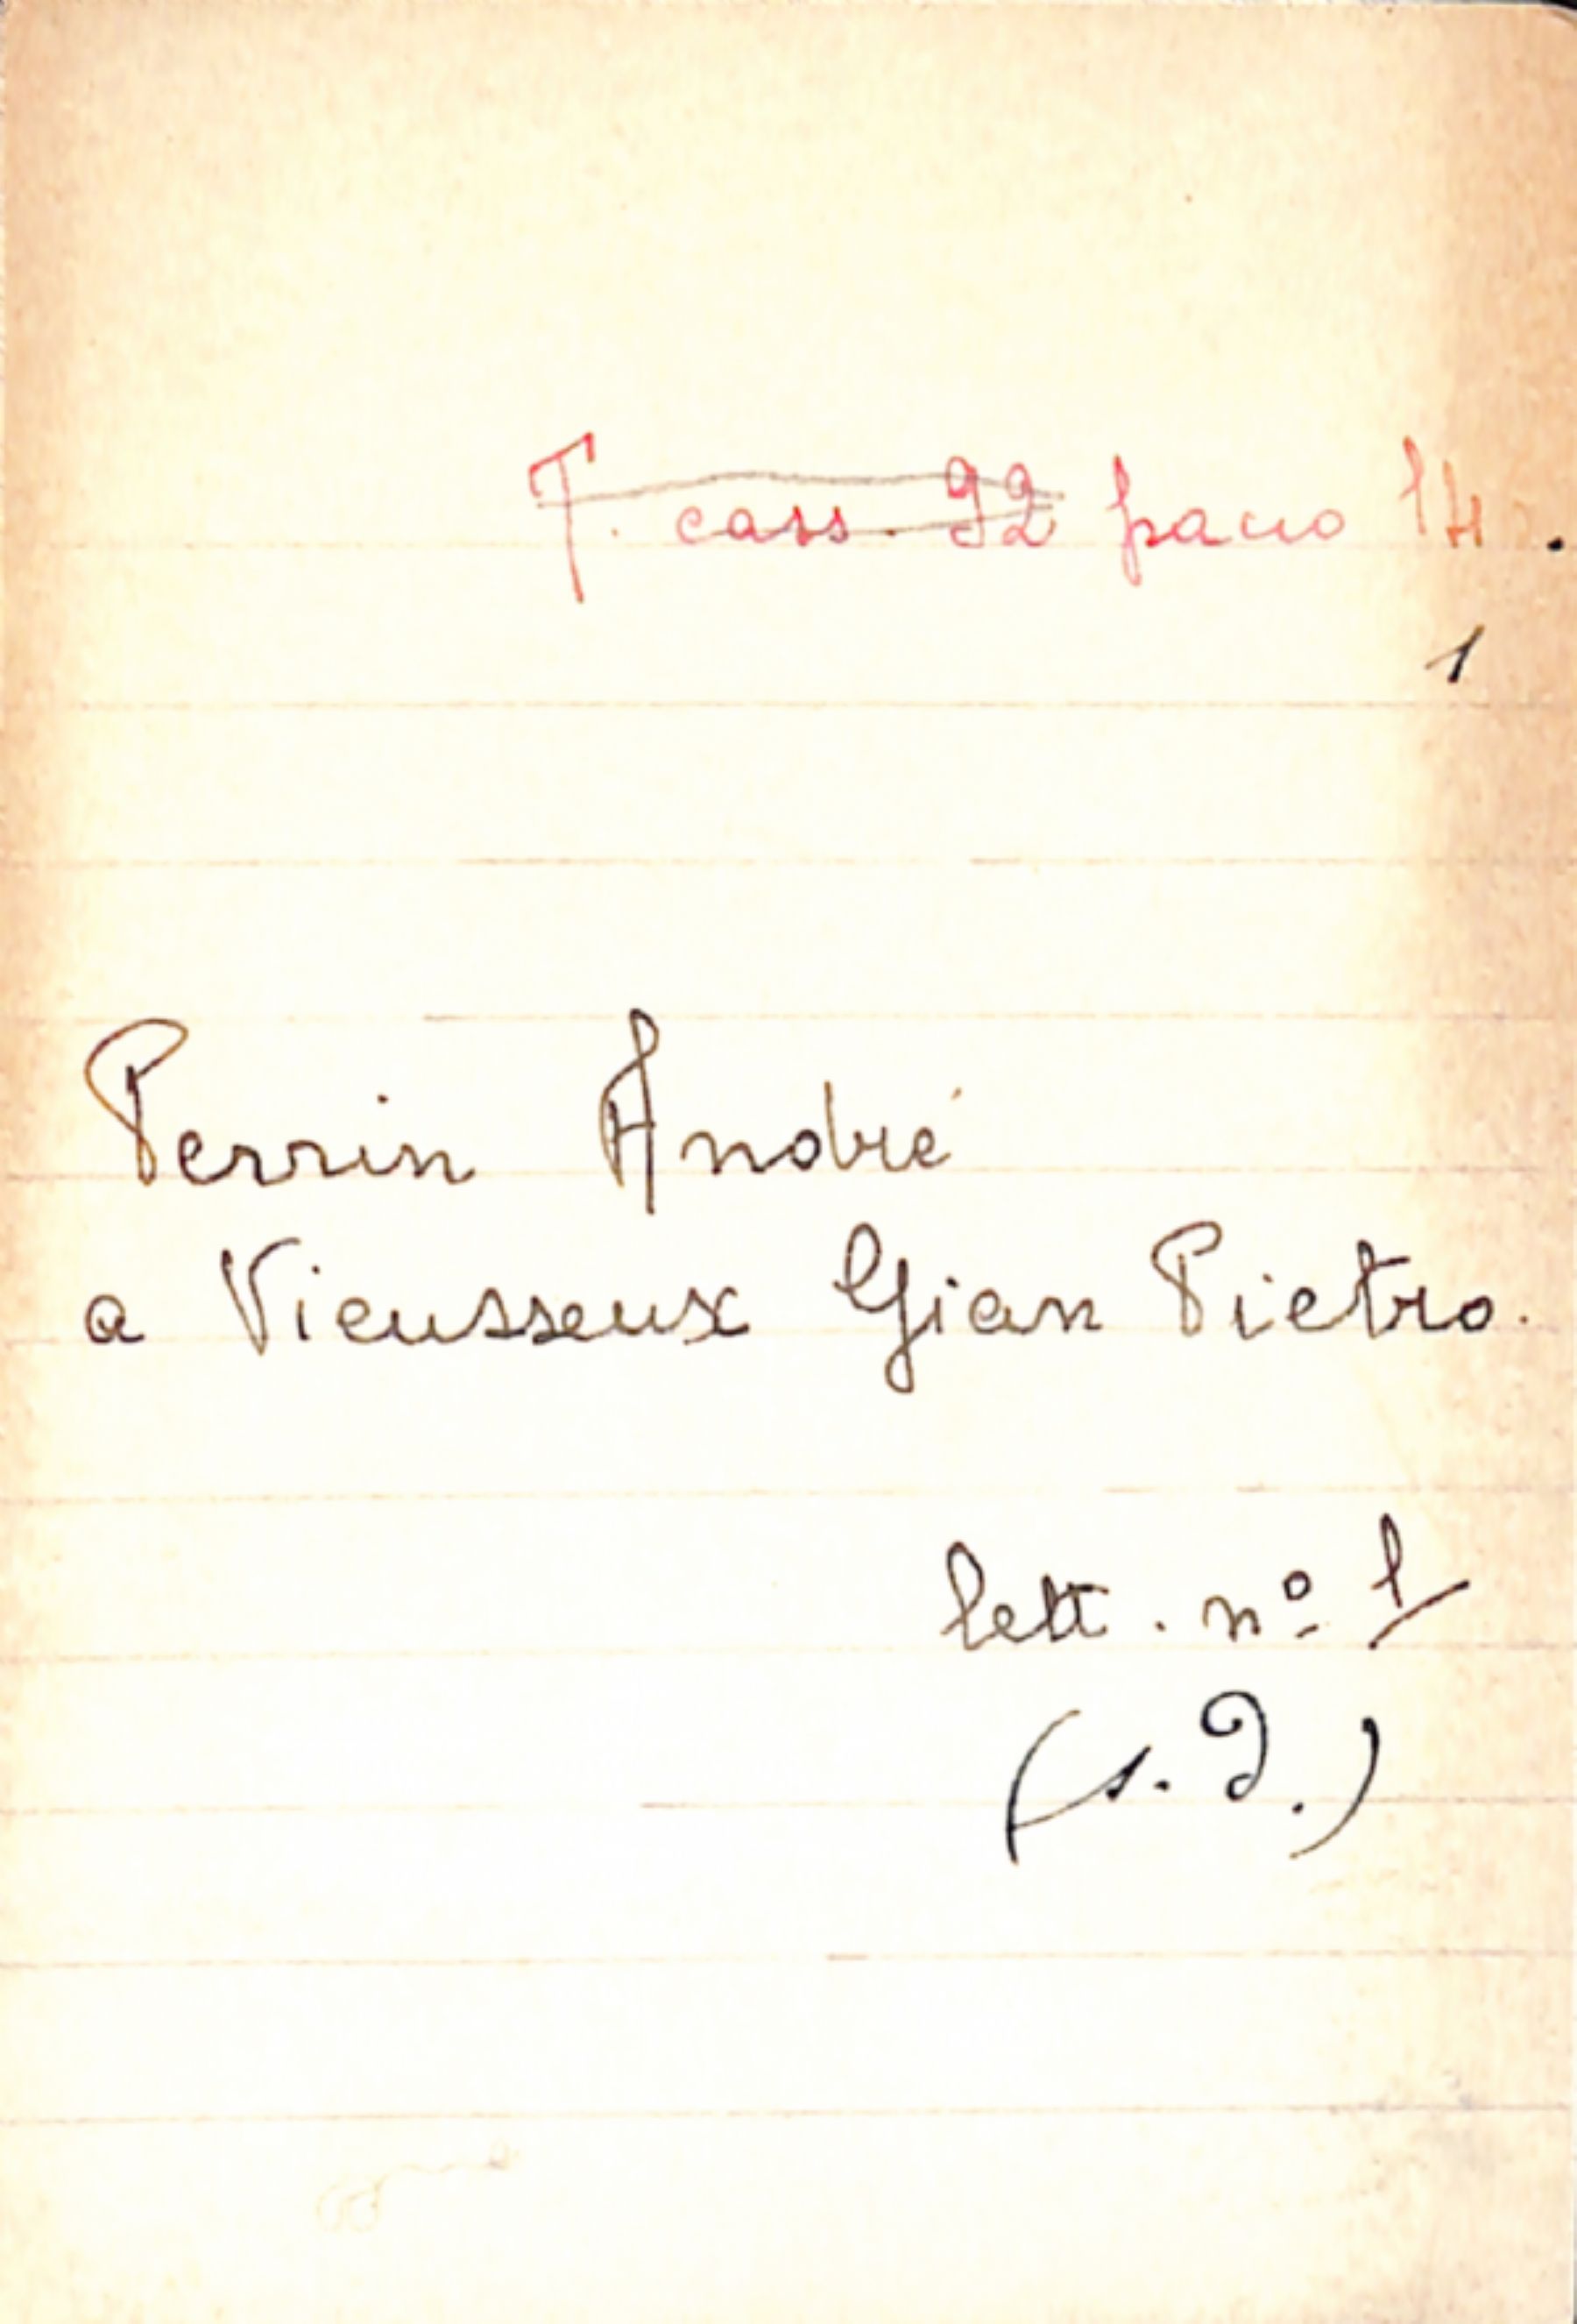 T. cass. 92 pacco 14.
1
Perrin André
a Vieusseux Gian Pietro.
lett. nº 1
(s. d.)